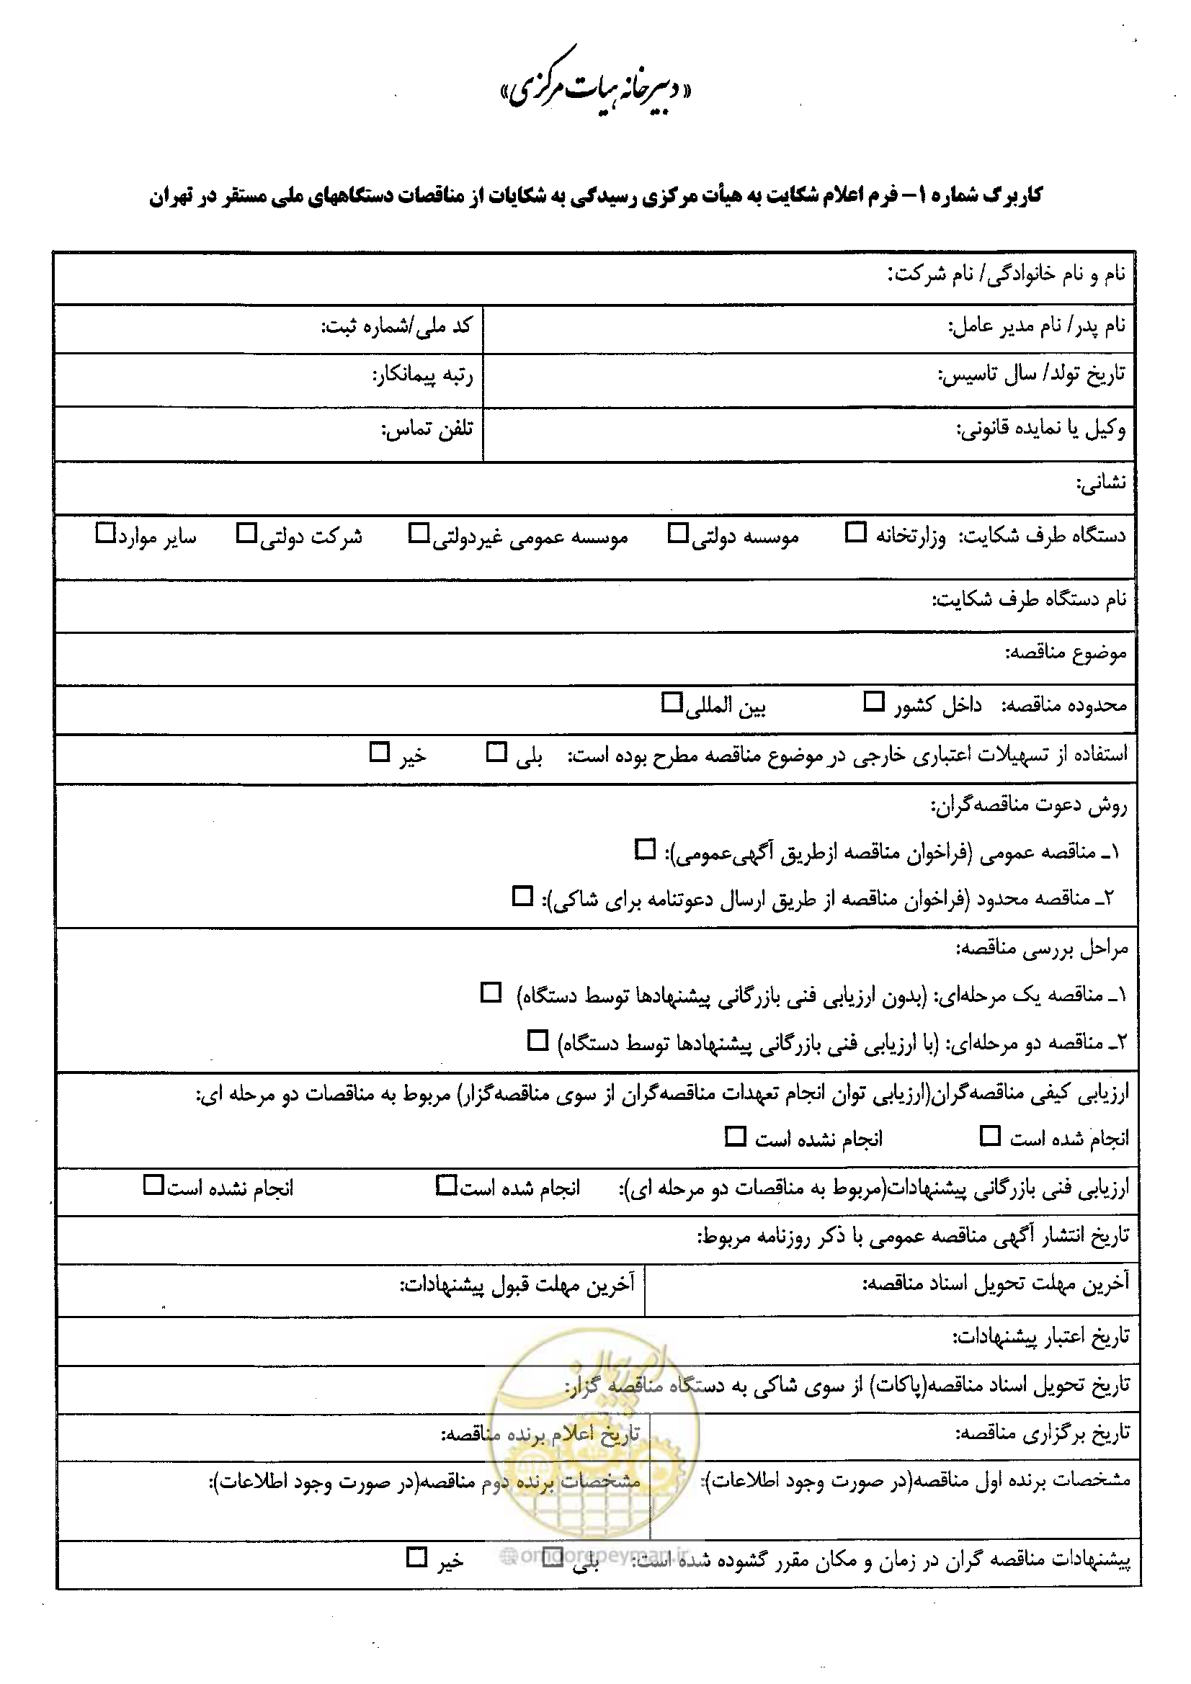 «دبیرخانه هیات مرکزی»
کاربرگ شماره ۱– فرم اعلام شکایت به هیأت مرکزی رسیدگی به شکایات از مناقصات دستگاههای ملی مستقر در تهران
نام و نام خانوادگی/ نام شرکت:
نام پدر/ نام مدیر عامل: کد ملی/شماره ثبت:
تاریخ تولد/ سال تاسیس: رتبه پیمانکار:
وکیل یا نماینده قانونی: تلفن تماس:
نشانی:
دستگاه طرف شکایت: وزارتخانه □ موسسه دولتی□ موسسه عمومی غیردولتی□ شرکت دولتی□ سایر موارد□
نام دستگاه طرف شکایت:
موضوع مناقصه:
محدوده مناقصه: داخل کشور □ بین المللی□
استفاده از تسهیلات اعتباری خارجی در موضوع مناقصه مطرح بوده است: بلی □ خیر □
روش دعوت مناقصه‌گران:
۱ـ مناقصه عمومی (فراخوان مناقصه ازطریق آگهی‌عمومی): □
۲ـ مناقصه محدود (فراخوان مناقصه از طریق ارسال دعوتنامه برای شاکی): □
مراحل بررسی مناقصه:
۱ـ مناقصه یک مرحله‌ای: (بدون ارزیابی فنی بازرگانی پیشنهادها توسط دستگاه) □
۲ـ مناقصه دو مرحله‌ای: (با ارزیابی فنی بازرگانی پیشنهادها توسط دستگاه) □
ارزیابی کیفی مناقصه‌گران(ارزیابی توان انجام تعهدات مناقصه‌گران از سوی مناقصه‌گزار) مربوط به مناقصات دو مرحله ای:
انجام شده است □ انجام نشده است □
ارزیابی فنی بازرگانی پیشنهادات(مربوط به مناقصات دو مرحله ای): انجام شده است□ انجام نشده است□
تاریخ انتشار آگهی مناقصه عمومی با ذکر روزنامه مربوط:
آخرین مهلت تحویل اسناد مناقصه: آخرین مهلت قبول پیشنهادات:
تاریخ اعتبار پیشنهادات:
تاریخ تحویل اسناد مناقصه(پاکات) از سوی شاکی به دستگاه مناقصه گزار:
تاریخ برگزاری مناقصه: تاریخ اعلام برنده مناقصه:
مشخصات برنده اول مناقصه(در صورت وجود اطلاعات): مشخصات برنده دوم مناقصه(در صورت وجود اطلاعات):
پیشنهادات مناقصه گران در زمان و مکان مقرر گشوده شده است: بلی □ خیر □
امور پیمان
@omoorepeyman.ir